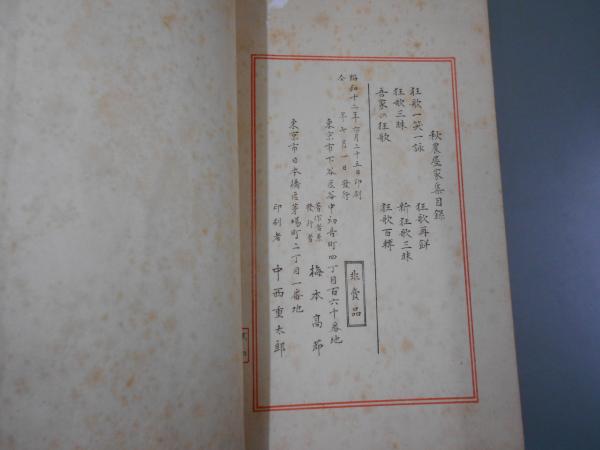 秋農屋家集目録
狂歌一笑一詠
狂歌再餅
狂歌三昧
新狂歌三昧
吾家の狂歌
狂歌百耨
昭和十二年六月二十五日印刷
仝 年七月一日 發行
非賣品
東京市下谷區谷中初音町四丁目百六十番地
著作者兼
發行者
梅本高節
東京市日本橋區茅場町二丁目一番地
印刷者 中西重太郎